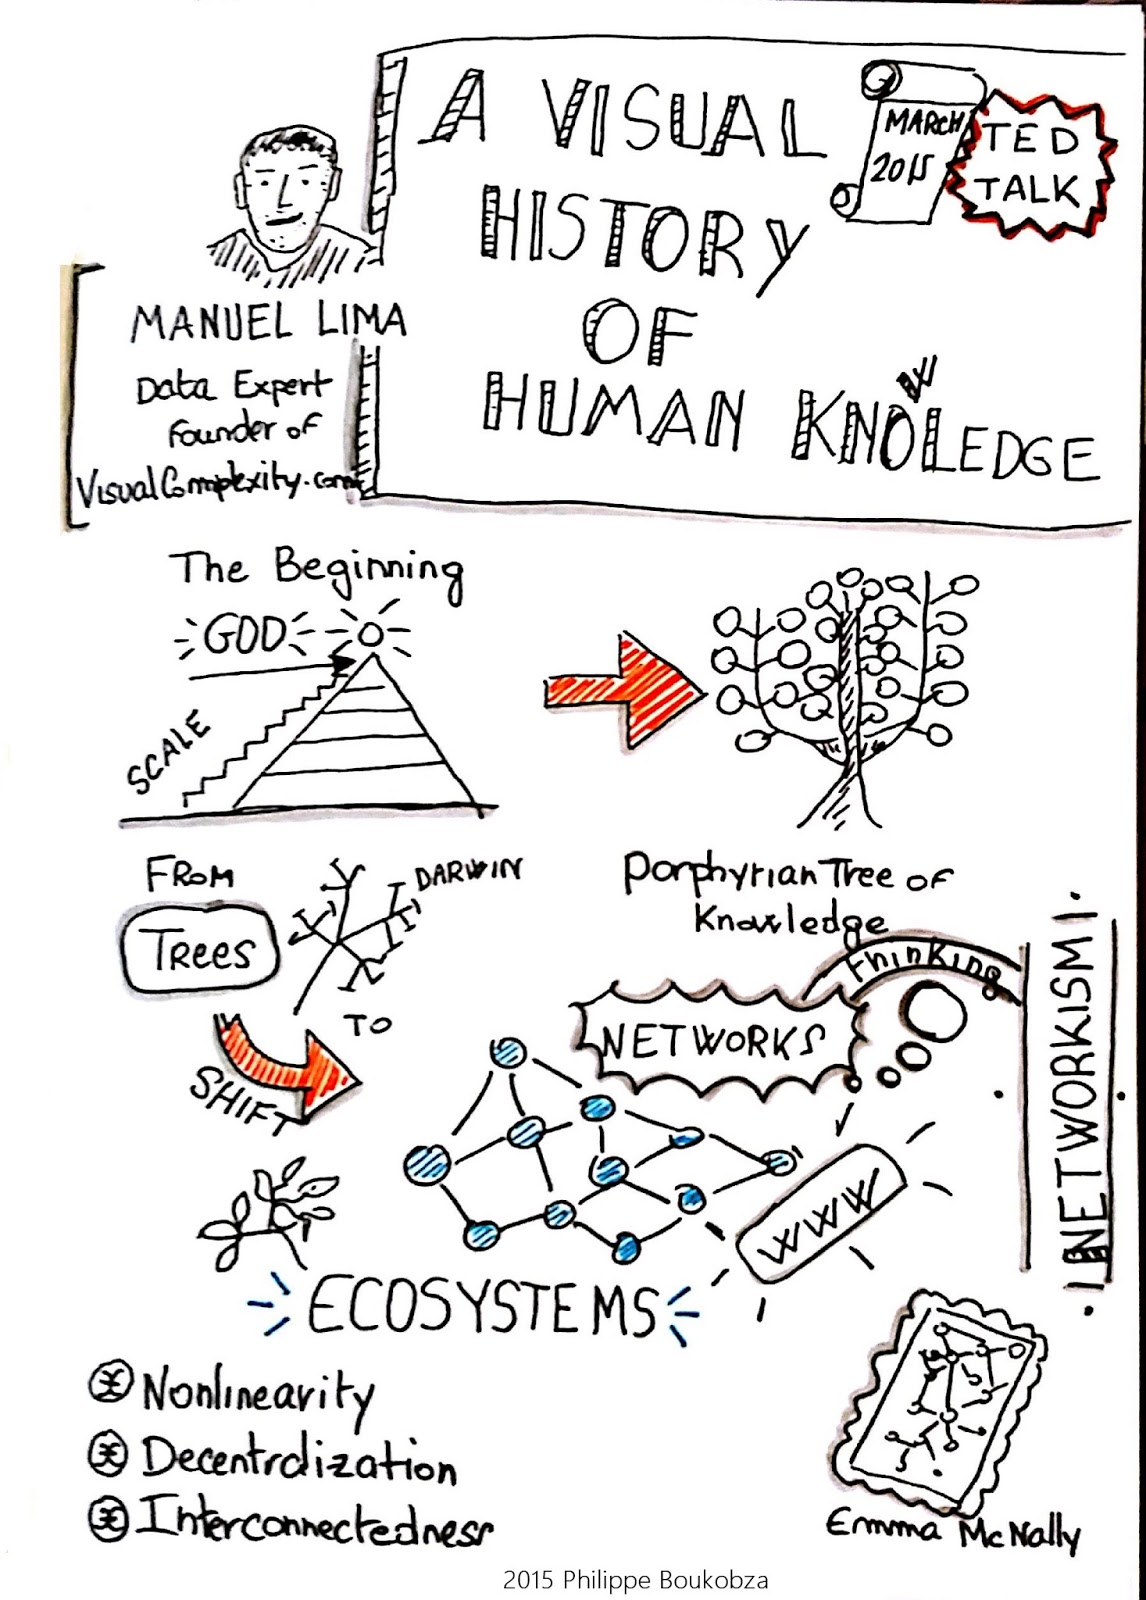 A VISUAL
HISTORY
OF
HUMAN KNOWLEDGE
MARCH
2015
TED
TALK
MANUEL LIMA
Data Expert
Founder of
VisualComplexity.com
The Beginning
GOD
SCALE
Porphyrian Tree of
Knowledge
FROM
TREES
DARWIN
TO
SHIFT
NETWORKS
thinking
NETWORKISM
WWW
ECOSYSTEMS
Nonlinearity
Decentralization
Interconnectedness
Emma McNally
2015 Philippe Boukobza